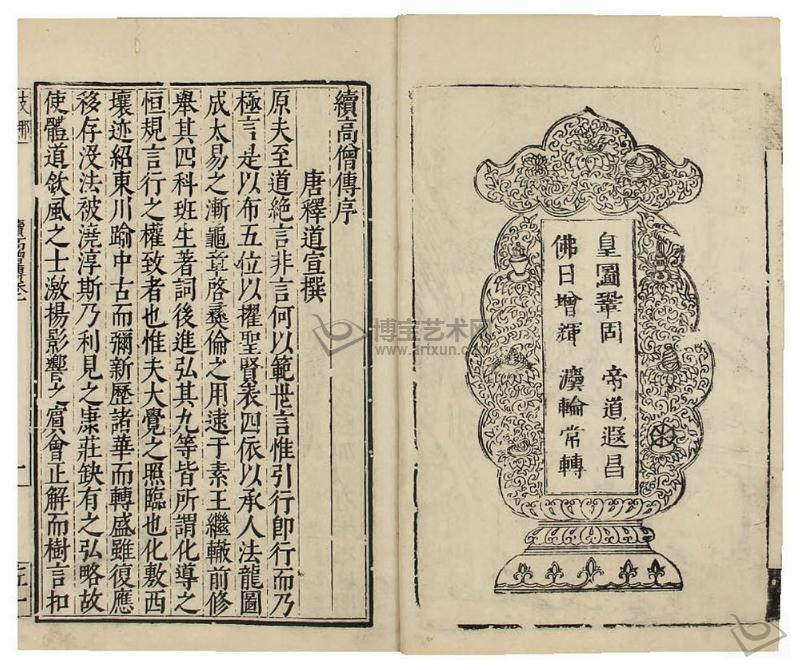 皇圖鞏固 帝道遐昌
佛日增輝 灋輪常轉
續高僧傳序
唐釋道宣撰
原夫至道絕言非言何以範世言惟引行即行而乃
極言是以布五位以擢聖賢表四依以承人法龍圖
成太易之漸龜章啓彝倫之用逮于素王繼轍前修
舉其四科班生著詞後進弘其九等皆所謂化導之
恒規言行之權致者也惟夫大覺之照臨也化敷西
壤迹紹東川踰中古而彌新歷諸華而轉盛雖復應
移存没法被澆淳斯乃利見之康莊缺有之弘略故
使體道欽風之士激揚影響之賓會正解而樹言扣
續高僧傳卷一
一
博宝艺术网
www.artxun.com